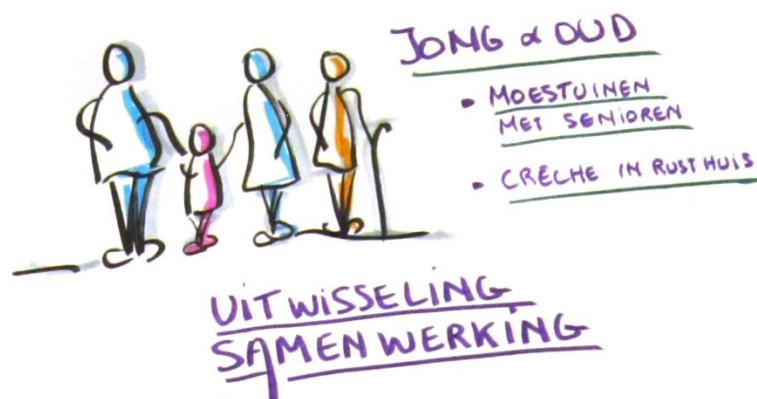 JONG & OUD
• MOESTUINEN
MET SENIOREN
• CRECHE IN RUSTHUIS
UITWISSELING
SAMENWERKING